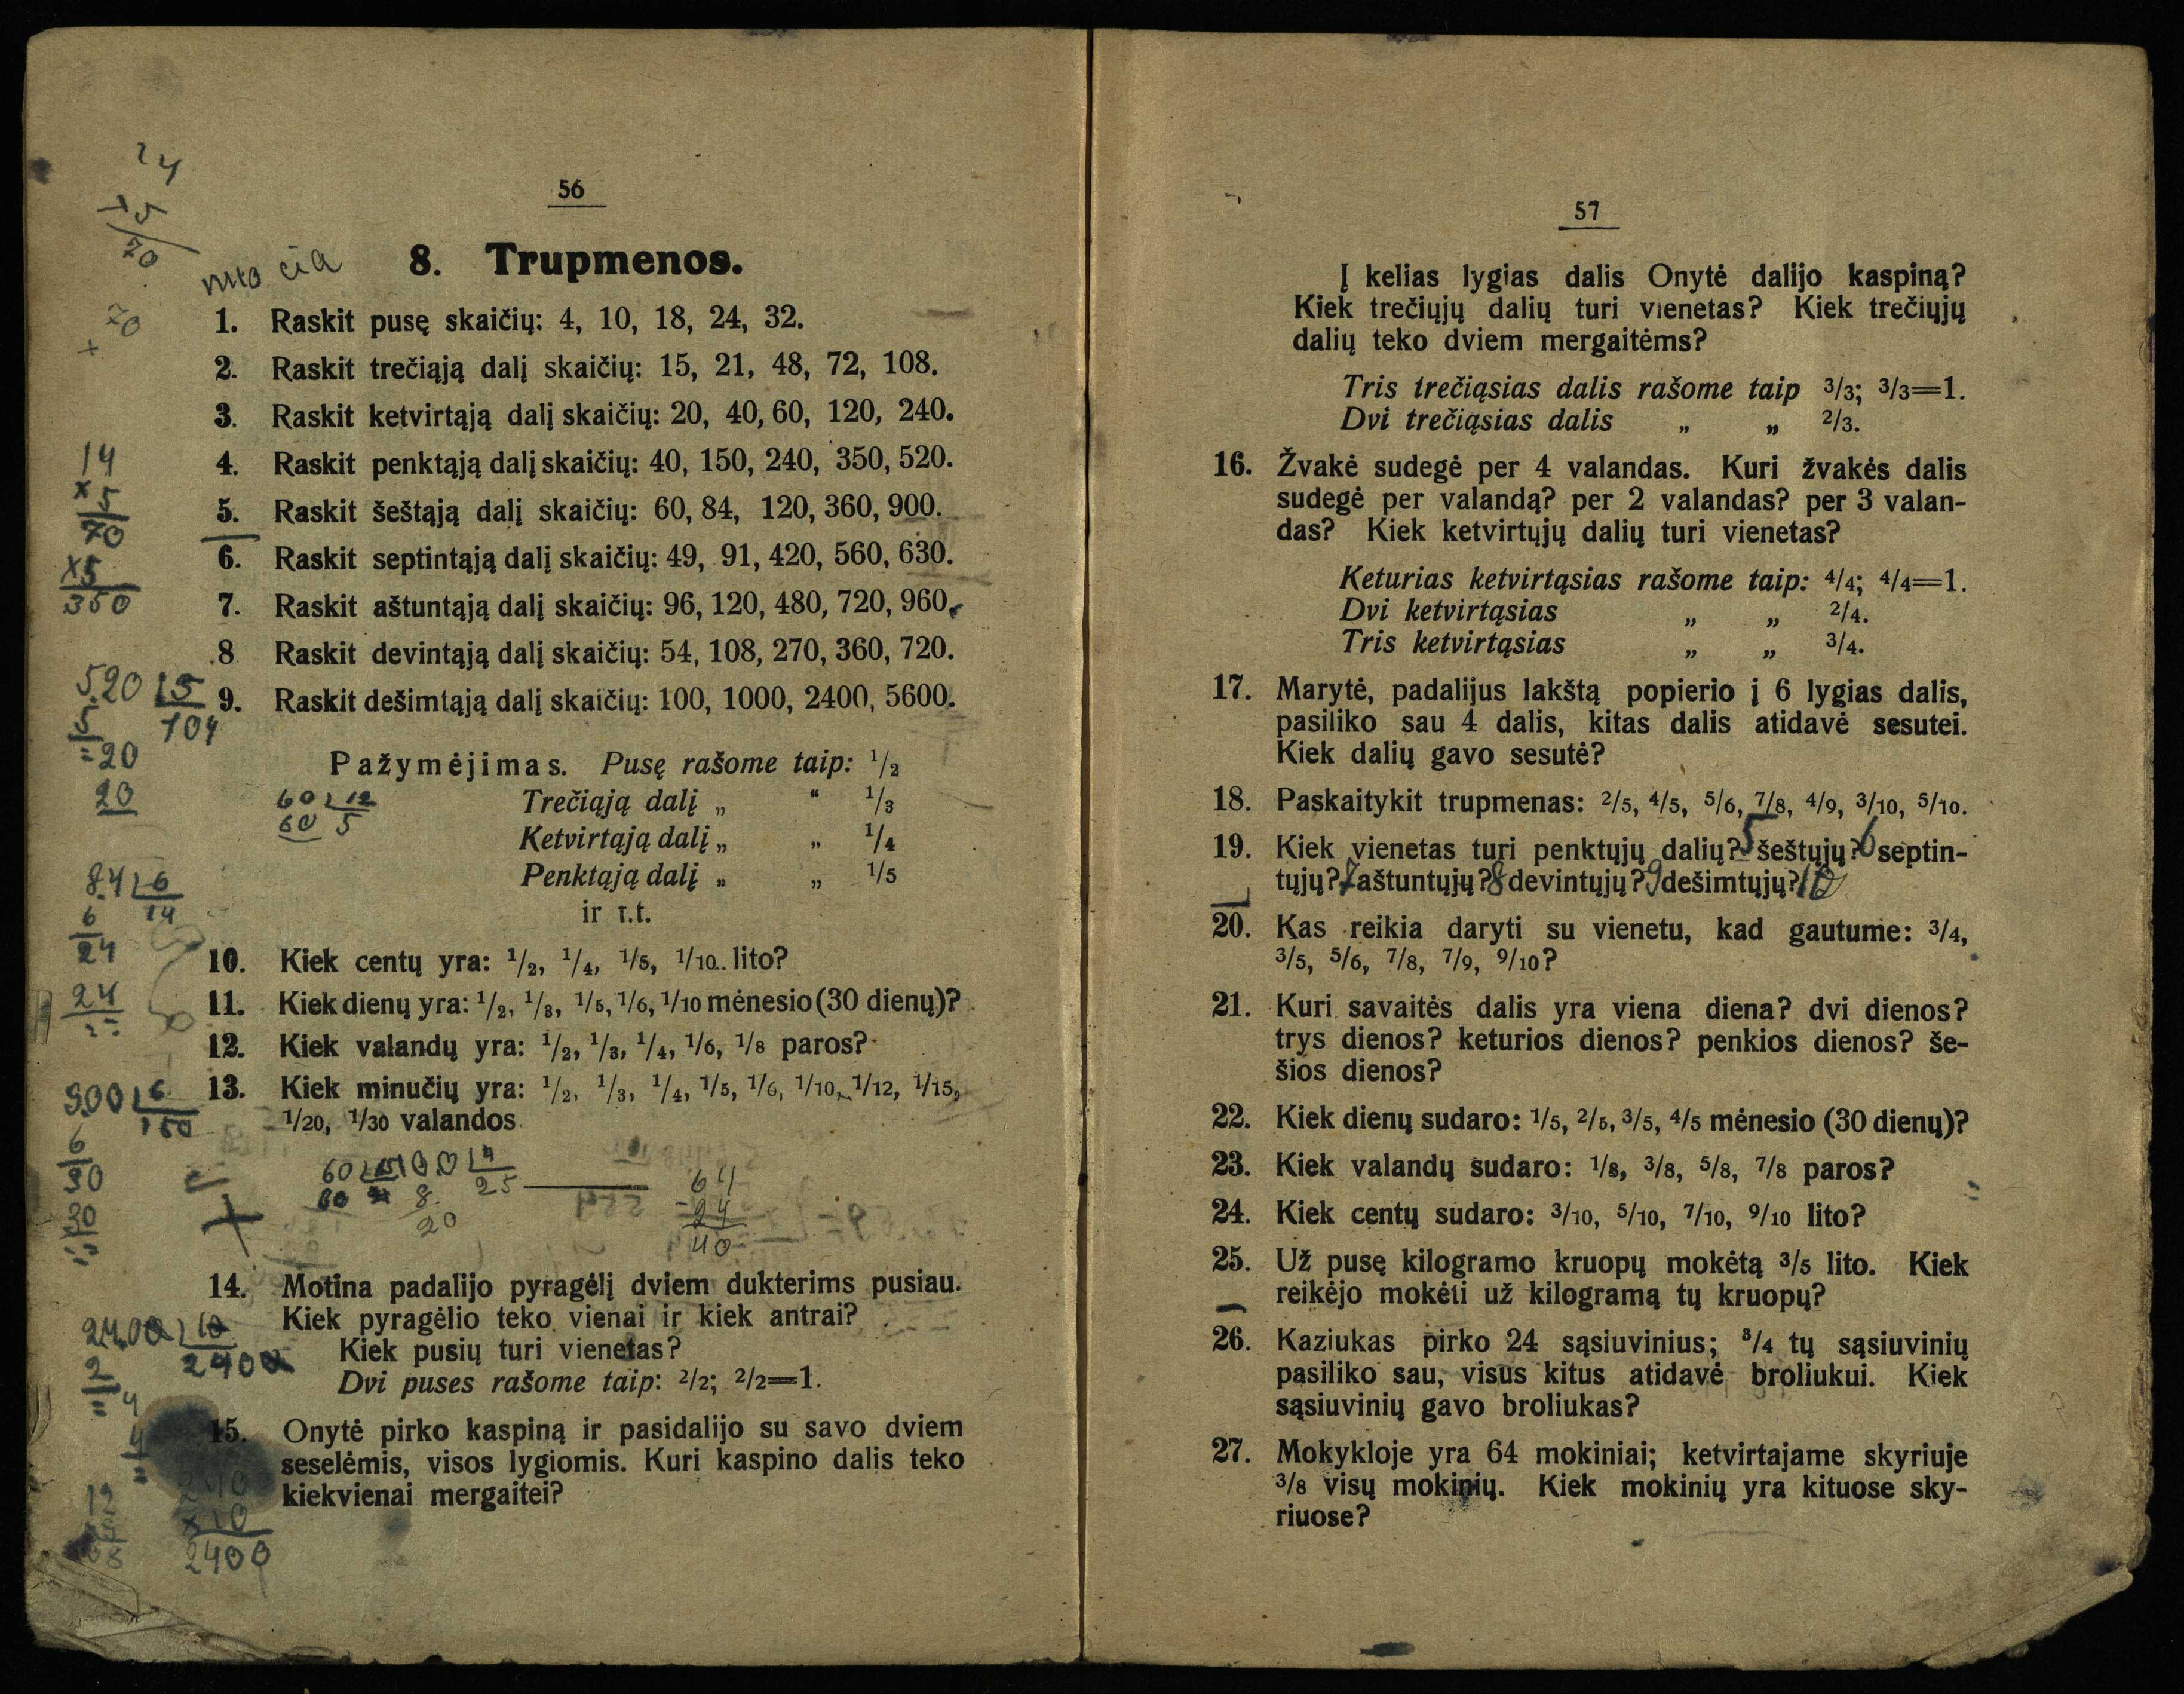 56
8. Trupmenos.
nuo čia
1. Raskit pusę skaičių: 4, 10, 18, 24, 32.
2. Raskit trečiąją dalį skaičių: 15, 21, 48, 72, 108.
3. Raskit ketvirtąją dalį skaičių: 20, 40, 60, 120, 240.
4. Raskit penktąją dalį skaičių: 40, 150, 240, 350, 520.
5. Raskit šeštąją dalį skaičių: 60, 84, 120, 360, 900.
6. Raskit septintąją dalį skaičių: 49, 91, 420, 560, 630.
7. Raskit aštuntąją dalį skaičių: 96, 120, 480, 720, 960.
8 Raskit devintąją dalį skaičių: 54, 108, 270, 360, 720.
9. Raskit dešimtąją dalį skaičių: 100, 1000, 2400, 5600.
Pažymėjimas. Pusę rašome taip: 1/2
Trečiąją dalį „ “ 1/3
Ketvirtąją dalį „ „ 1/4
Penktąją dalį „ „ 1/5
ir t.t.
10. Kiek centų yra: 1/2, 1/4, 1/5, 1/10 lito?
11. Kiek dienų yra: 1/2, 1/3, 1/5, 1/6, 1/10 mėnesio (30 dienų)?
12. Kiek valandų yra: 1/2, 1/3, 1/4, 1/6, 1/8 paros?
13. Kiek minučių yra: 1/2, 1/3, 1/4, 1/5, 1/6, 1/10, 1/12, 1/15,
1/20, 1/30 valandos
14. Motina padalijo pyragėlį dviem dukterims pusiau.
Kiek pyragėlio teko vienai ir kiek antrai?
Kiek pusių turi vienetas?
Dvi puses rašome taip: 2/2; 2/2=1.
15. Onytė pirko kaspiną ir pasidalijo su savo dviem
seselėmis, visos lygiomis. Kuri kaspino dalis teko
kiekvienai mergaitei?
14
x 5
70
x5
350
520 5
5 104
20
20
60 12
60 5
84 6
6 14
24
24
900 6
6 150
30
30
100 4
8 25
20
64
-24
40
x 10
2400
57
Į kelias lygias dalis Onytė dalijo kaspiną?
Kiek trečiųjų dalių turi vienetas? Kiek trečiųjų
dalių teko dviem mergaitėms?
Tris trečiąsias dalis rašome taip 3/3; 3/3=1.
Dvi trečiąsias dalis „ „ 2/3.
16. Žvakė sudegė per 4 valandas. Kuri žvakės dalis
sudegė per valandą? per 2 valandas? per 3 valan-
das? Kiek ketvirtųjų dalių turi vienetas?
Keturias ketvirtąsias rašome taip: 4/4; 4/4=1.
Dvi ketvirtąsias „ „ 2/4.
Tris ketvirtąsias „ „ 3/4.
17. Marytė, padalijus lakštą popierio į 6 lygias dalis,
pasiliko sau 4 dalis, kitas dalis atidavė sesutei.
Kiek dalių gavo sesutė?
18. Paskaitykit trupmenas: 2/5, 4/5, 5/6, 7/8, 4/9, 3/10, 5/10.
19. Kiek vienetas turi penktųjų dalių? 5 šeštųjų? 6 septin-
tųjų? 7 aštuntųjų? 8 devintųjų? 9 dešimtųjų? 10
20. Kas reikia daryti su vienetu, kad gautume: 3/4,
3/5, 5/6, 7/8, 7/9, 9/10?
21. Kuri savaitės dalis yra viena diena? dvi dienos?
trys dienos? keturios dienos? penkios dienos? še-
šios dienos?
22. Kiek dienų sudaro: 1/5, 2/5, 3/5, 4/5 mėnesio (30 dienų)?
23. Kiek valandų sudaro: 1/8, 3/8, 5/8, 7/8 paros?
24. Kiek centų sudaro: 3/10, 5/10, 7/10, 9/10 lito?
25. Už pusę kilogramo kruopų mokėtą 3/5 lito. Kiek
reikėjo mokėti už kilogramą tų kruopų?
26. Kaziukas pirko 24 sąsiuvinius; 3/4 tų sąsiuvinių
pasiliko sau, visus kitus atidavė broliukui. Kiek
sąsiuvinių gavo broliukas?
27. Mokykloje yra 64 mokiniai; ketvirtajame skyriuje
3/8 visų mokinių. Kiek mokinių yra kituose sky-
riuose?